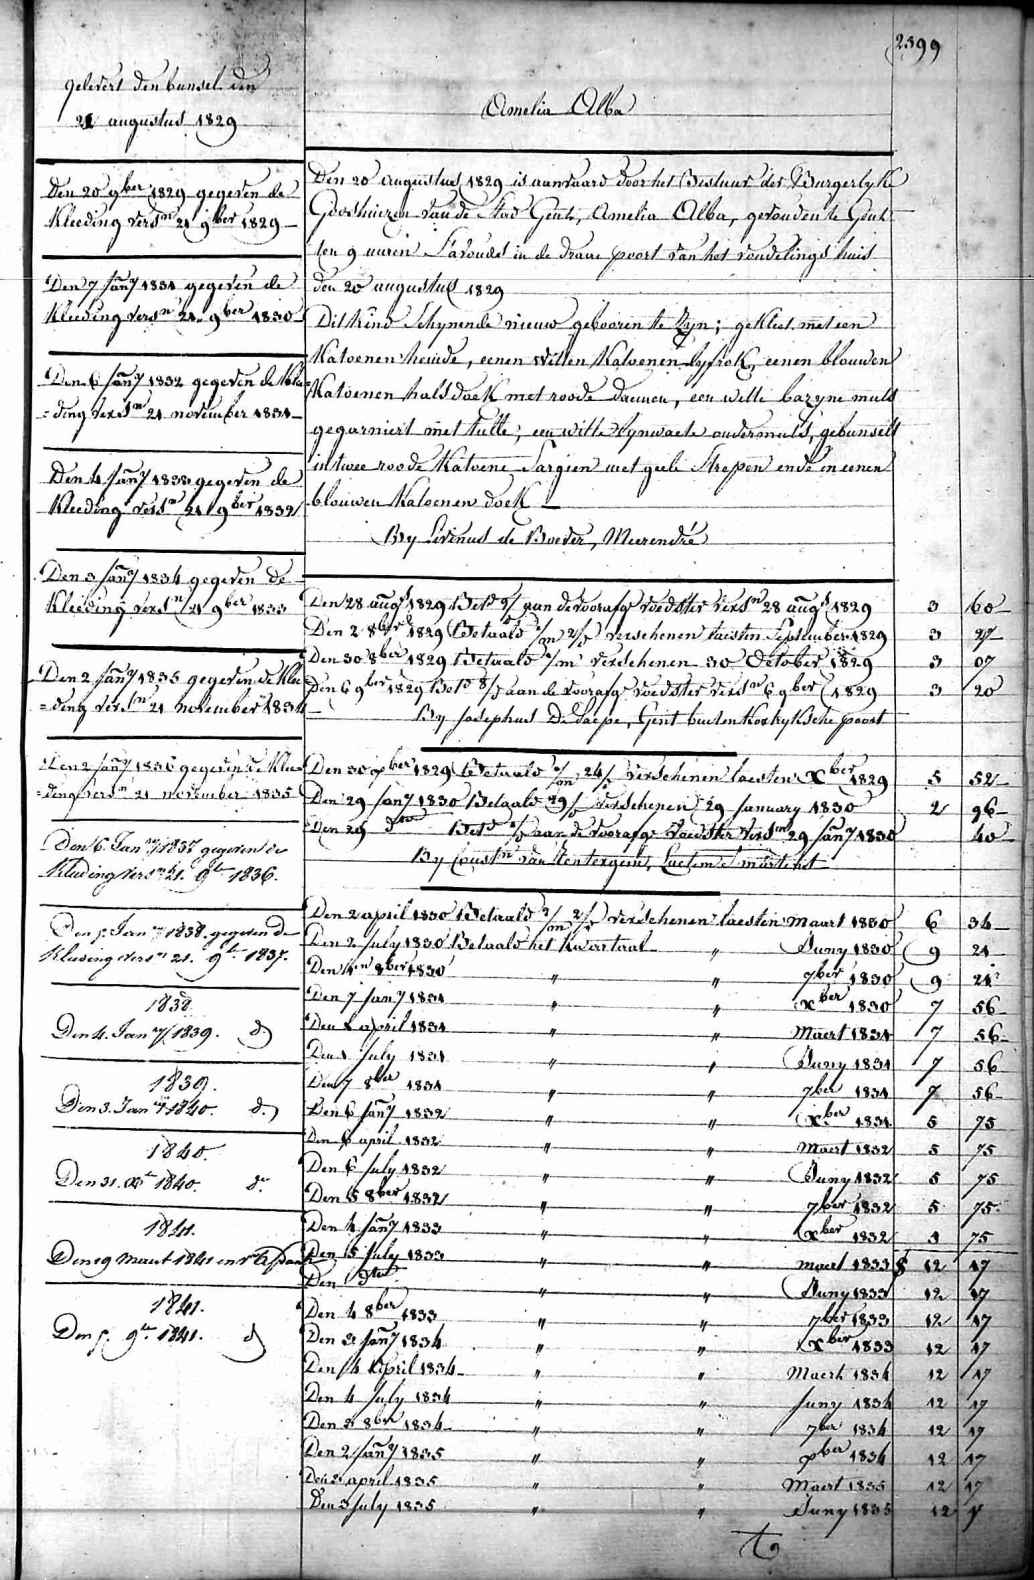 2399
gelevert den bunsel den
21 augustus 1829
Amelia Alba
Den 20 9ber 1829 gegeven de
Kleeding versn 21 9ber 1829
Den 7 Jany 1831 gegeven de
Kleeding versn 21 9ber 1830
Den 6 Jany 1832 gegeven de Klee
=ding versn 21 november 1831
Den 4 Jany 1833 gegeven de
Kleeding versn 21 9ber 1832
Den 3 Jany 1834 gegeven de
Kleeding versn 21 9ber 1833
Den 2 Jany 1835 gegeven de Klee
=ding versn 21 november 1834
Den 2 Jany 1836 gegeven de Klee
=ding versn 21 november 1835
Den 6 Jany 1837 gegeven de
Kleeding versn 21. 9br 1836.
Den 5 Jany 1838. gegeven de
Kleeding versn 21. 9br 1837.
1838
Den 4. Jany 1839. do
1839.
Den 3. Jany 1840. do
1840.
Den 31. Xbr 1840. do
1841.
Den 19 Maert 1841 een
1841.
Den 5. 9br 1841. do
Den 20 augustus 1829 is aanvaard door het Bestuur der Burgerlyke
Godshuizen van de Stad Gent, Amelia Alba, gevonden te Gent
ten 9 uuren S'avonds in de draai poort van het vondelings huis
den 20 augustus 1829
Dit kind Schynende nieuw gebooren te zyn; gekleet met een
Katoenen hemde, eenen witten Katoenen lyfrok, eenen blouwen
Katoenen halsdoek met roode , een witte bazyne muts
gegarniert met tulle; een witte lynwaete ondermuts, gebunselt
in twee roode Katoene Sargien met geele Strepen ende in eenen
blouwen Katoenen doek
By Livinus de Boever, Meerendré
Den 28 augs 1829 Betd aan de voorafge voedster versn 28 augs 1829 3 60
Den 2 8ber 1829 Betaald verschenen laesten September 1829 3 27
Den 30 8ber 1829 Betaald verschenen 30 October 1829 3 07
Den 6 9ber 1829 Betd aan de voorafge voedster versn 6 9ber 1829 3 20
By Josephus D. Saepe, Gent buiten Kortryksche poort
Den 30 Xber 1829 Betaald verschenen laesten Xber 1829 5 52
Den 29 Jany 1830 Betaald verschenen 29 January 1830 2 96
Den 29 dto Betd aan de voorafge Voedster versn 29 Jany 1830 40
By Constn van Zentergem, Laethem St martens
Den 2 april 1830 Betaald verschenen laesten maart 1830 6 34
Den 2 July 1830 Betaald het Kwartaal " Juny 1830 9 24
Den 4n 8ber 1830 " " 7ber 1830 9 24
Den 7 Jany 1831 " " Xber 1830 7 56
Den 8 april 1831 " " Maert 1831 7 56
Den 1 July 1831 " " Juny 1831 7 56
Den 7 8ber 1831 " " 7ber 1831 7 56
Den 6 Jany 1832 " " Xber 1831 5 75
Den 6 april 1832 " " Maert 1832 5 75
Den 6 July 1832 " " Juny 1832 5 75
Den 5 8ber 1832 " " 7ber 1832 5 75
Den 4 Jany 1833 " " Xber 1832 3 75
Den 5 July 1833 " " maert 1833 12 17
Den dto " " Juny 1833 12 17
Den 4 8ber 1833 " " 7ber 1833 12 17
Den 3 Jany 1834 " " Xber 1833 12 17
Den 4 April 1834 " " Maert 1834 12 17
Den 4 July 1834 " " Juny 1834 12 17
Den 3 8ber 1834 " " 7ber 1834 12 17
Den 2 Jany 1835 " " Xber 1834 12 17
Den 2 april 1835 " " Maert 1835 12 17
Den 3 July 1835 " " Juny 1835 12 17